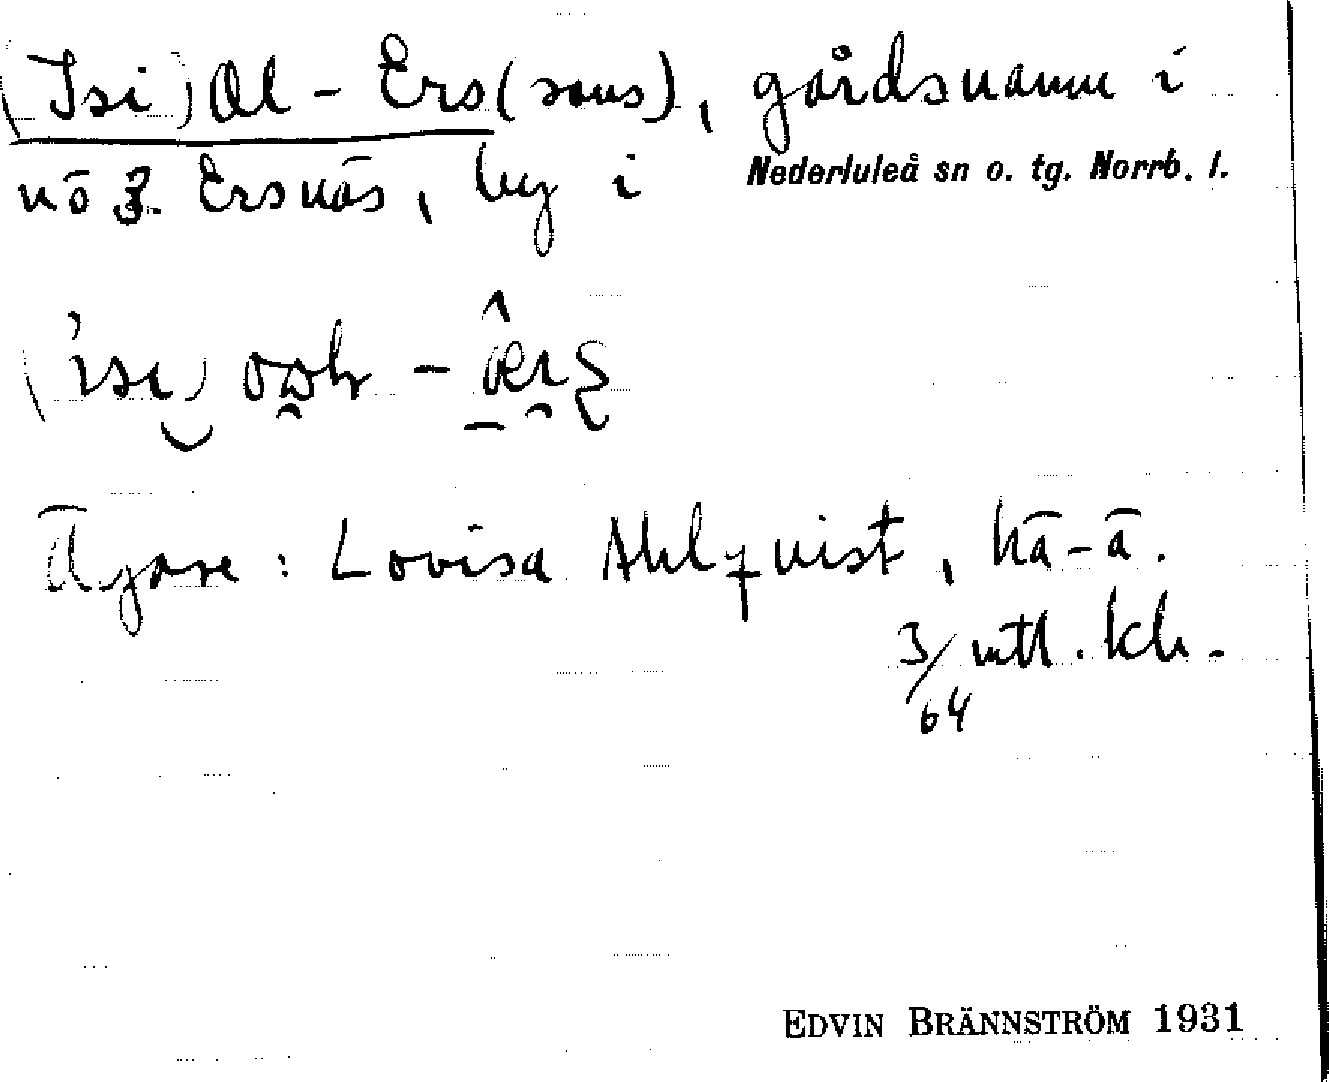 (Isi)Ol-Ers(sons), gårdsnamn i
nō 3. Ersnäs, by i Nederluleå sn o. tg. Norrb. l.
Ägare: Lovisa Ahlqvist, hä-ā.
3/64 mtl. kh.
EDVIN BRÄNNSTRÖM 1931